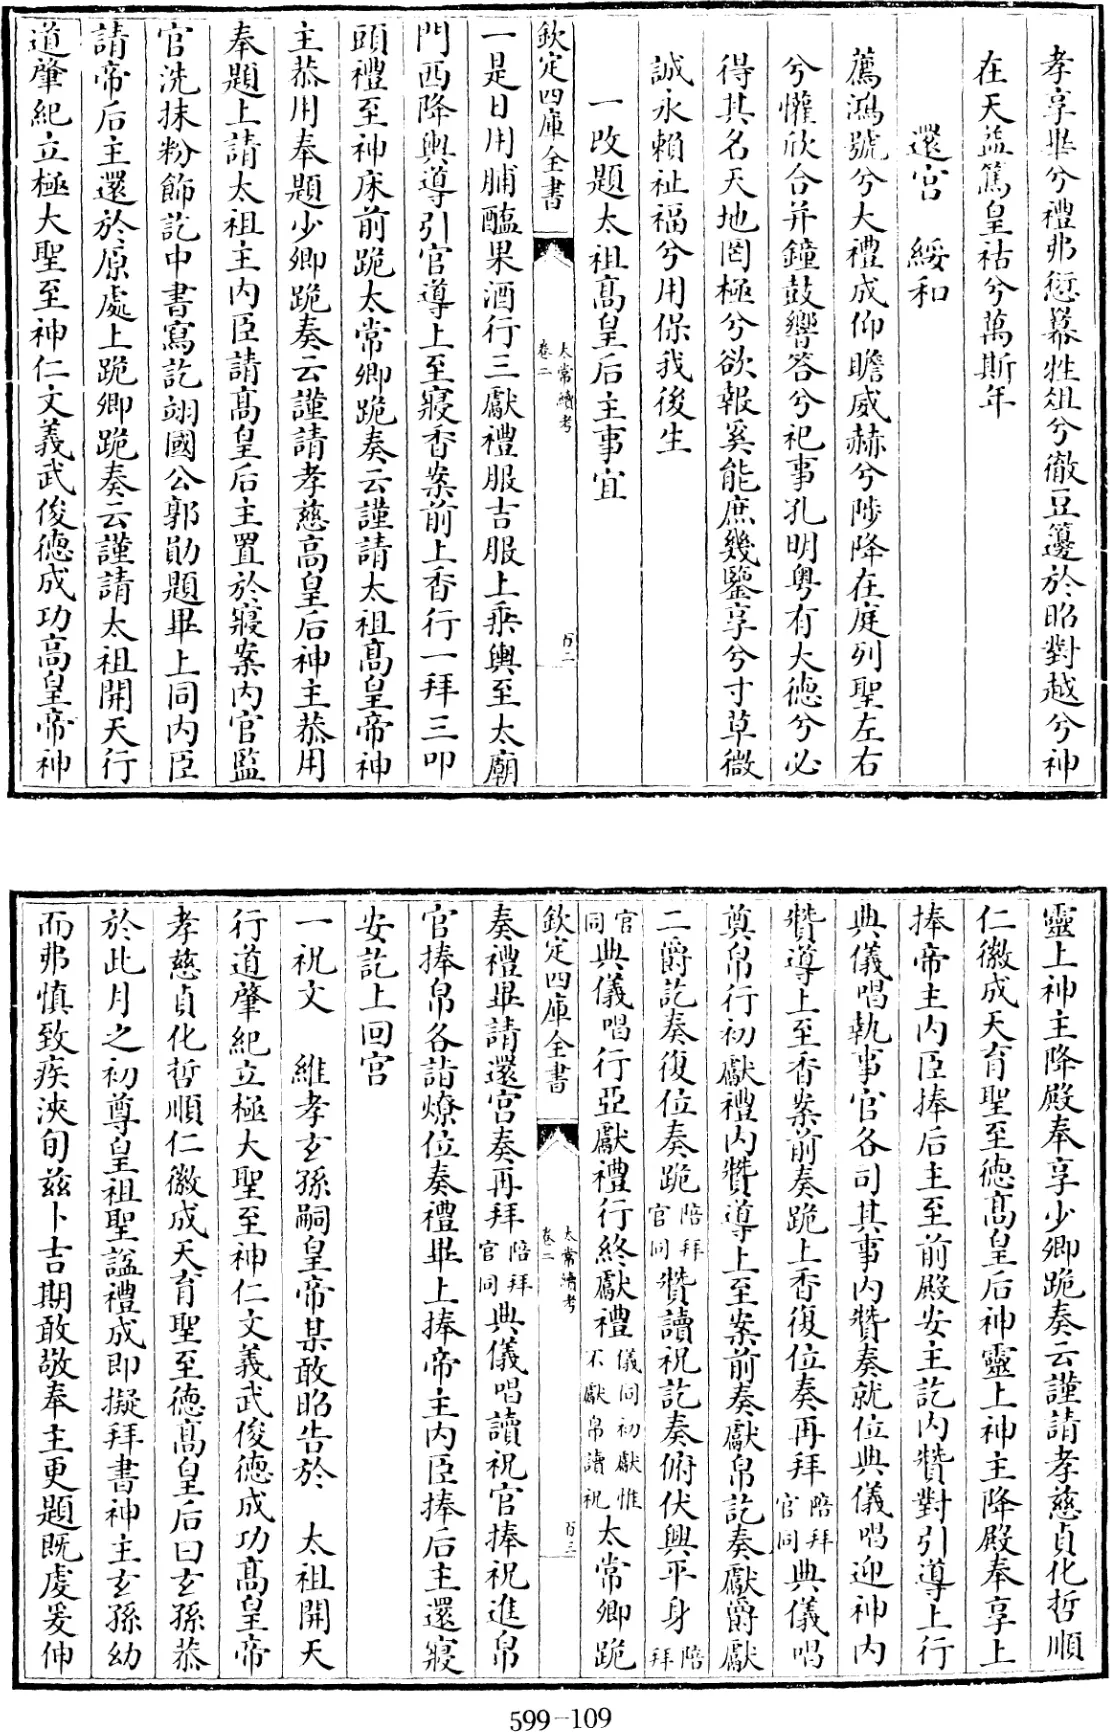 孝享畢兮禮弗愆羃牲俎兮徹豆籩於昭對越兮神
在天益篤皇祜兮萬斯年
還宮　綏和
薦鴻號兮大禮成仰瞻威赫兮陟降在庭列聖左右
兮懽欣合并鐘鼓響答兮祀事孔明粤有大德兮必
得其名天地罔極兮欲報奚能庶幾鑒享兮寸草微
誠永賴祉福兮用保我後生
一改題太祖高皇后主事宜
欽定四庫全書
太常續考
卷二
百二
一是日用脯醢果酒行三獻禮服吉服上乘輿至太廟
門西降輿導引官導上至寢香案前上香行一拜三叩
頭禮至神床前跪太常卿跪奏云謹請太祖高皇帝神
主恭用奉題少卿跪奏云謹請孝慈高皇后神主恭用
奉題上請太祖主內臣請高皇后主置於寢案內官監
官洗抹粉飾訖中書寫訖翊國公郭勛題畢上同內臣
請帝后主還於原處上跪卿跪奏云謹請太祖開天行
道肇紀立極大聖至神仁文義武俊德成功高皇帝神
靈上神主降殿奉享少卿跪奏云謹請孝慈貞化哲順
仁徽成天育聖至德高皇后神靈上神主降殿奉享上
捧帝主內臣捧后主至前殿安主訖內贊對引導上行
典儀唱執事官各司其事內贊奏就位典儀唱迎神內
贊導上至香案前奏跪上香復位奏再拜陪拜官同典儀唱
奠帛行初獻禮內贊導上至案前奏獻帛訖奏獻爵獻
二爵訖奏復位奏跪陪拜官同贊讀祝訖奏俯伏興平身陪拜
官同典儀唱行亞獻禮行終獻禮儀同初獻惟不獻帛讀祝太常卿跪
欽定四庫全書
太常續考
卷二
百三
奏禮畢請還宮奏再拜陪拜官同典儀唱讀祝官捧祝進帛
官捧帛各詣燎位奏禮畢上捧帝主內臣捧后主還寢
安訖上回宮
一祝文　維孝玄孫嗣皇帝某敢昭告於　太祖開天
行道肇紀立極大聖至神仁文義武俊德成功高皇帝
孝慈貞化哲順仁徽成天育聖至德高皇后曰玄孫恭
於此月之初尊皇祖聖謚禮成即擬拜書神主玄孫幼
而弗慎致疾浹旬兹卜吉期敢敬奉主更題既虔爰伸
599-109